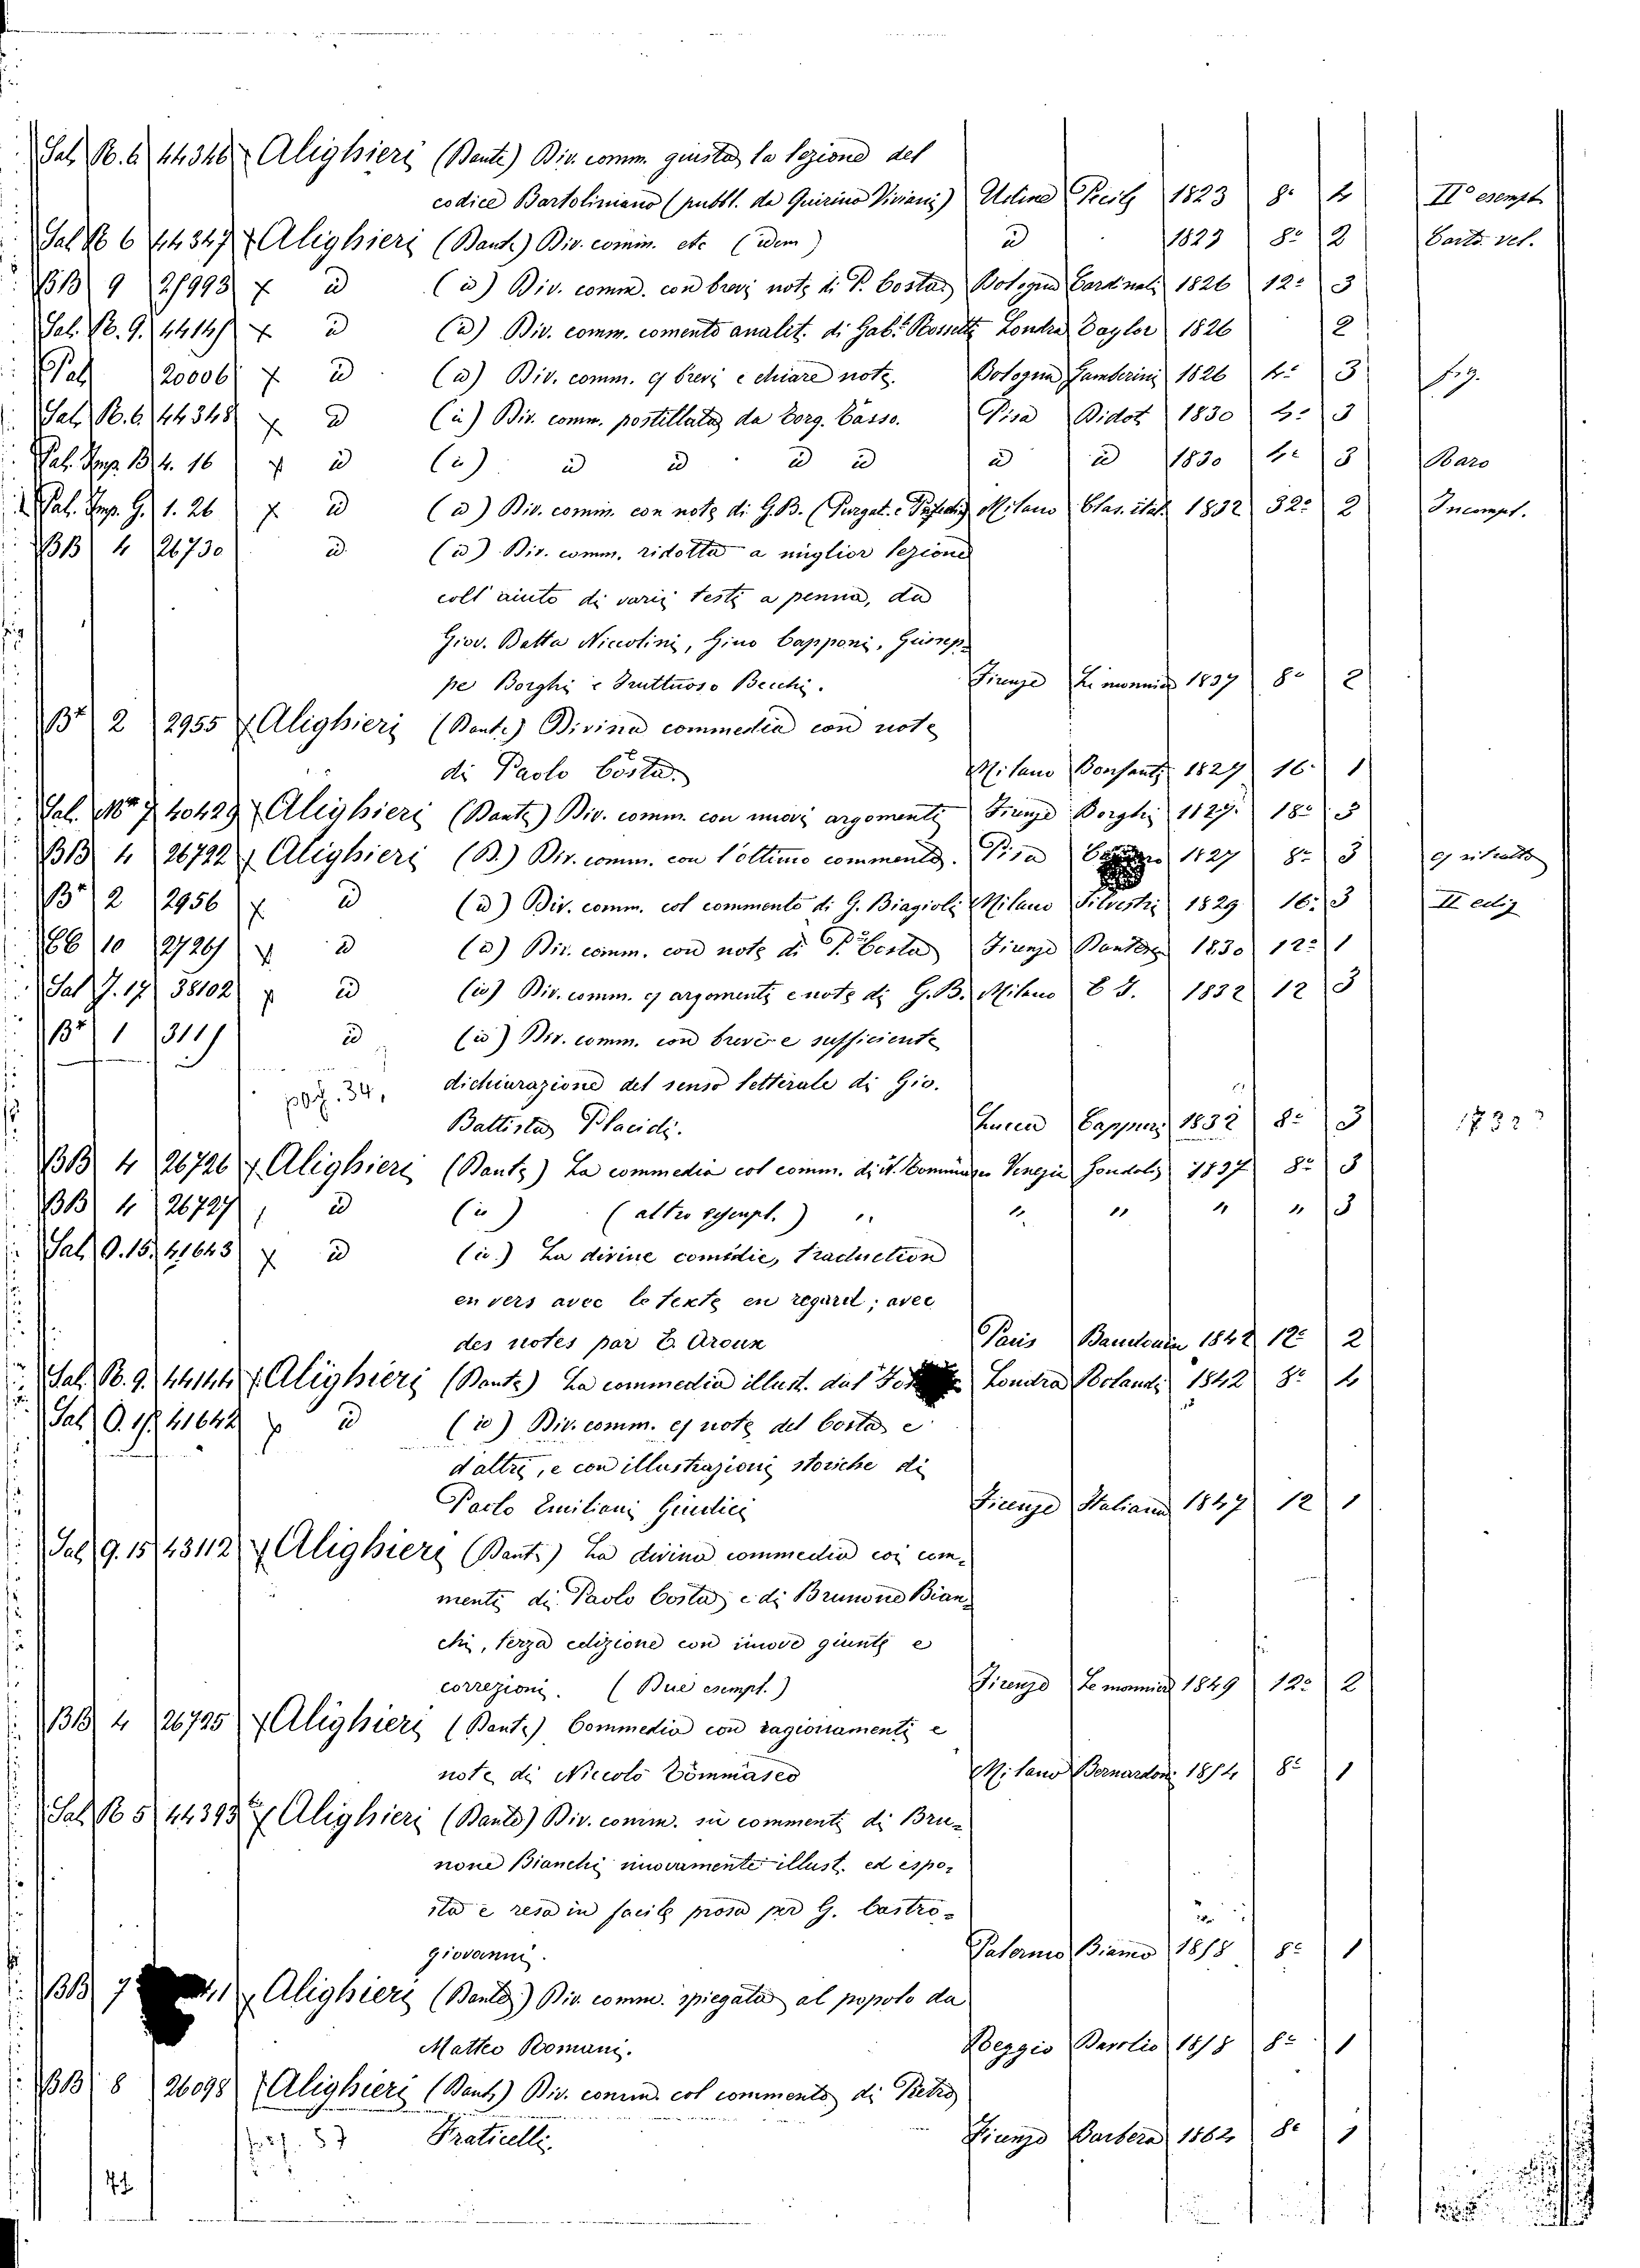 Sal. B. 6 44346 Alighieri (Dante) Div. comm. giusta la lezione del
codice Bartoliniano (pubbl. da Quirino Viviani) Udine Pecile 1823 8° 4 II° esempl.
Sal. B 6 44347 Alighieri (Dante) Div. comm. etc (idem) id 1823 8° 2 Carta vel.
BB 9 id (id) Div. comm. con brevi note di P. Costa Bologna Cardinali 1826 12° 3
Sal. B. 9. id (id) Div. comm. comento analit. di Gab. Rossetti Londra Taylor 1826 2
Pal 20006 id (id) Div. comm. c/ brevi e chiare note. Bologna Gamberini 1826 4° 3 fig.
Sal. B. 6. 44348 id (id) Div. comm. postillata da Torq. Tasso. Pisa Didot 1830 4° 3
Pal. Imp. B. 4. 16 id (id) id id id id id id 1830 4° 3 Raro
Pal. Imp. G. 1. 26 id (id) Div. comm. con note di G.B. (Purgat. e) Milano Clas. ital. 1832 32° 2 Incompl.
BB 4 26730 id (id) Div. comm. ridotta a miglior lezione
coll' aiuto di varii testi a penna, da
Giov. Batta Niccolini, Gino Capponi, Giusep-
pe Borghi e Fruttuoso Becchi. Firenze Le monnier 1837 8° 2
2 2955 Alighieri (Dante) Divina commedia con note
di Paolo Costa. Milano Bonfanti 1827 16° 1
Sal. 40429 Alighieri (Dante) Div. comm. con nuovi argomenti Firenze Borghi 1827. 18° 3
BB 4 26722 Alighieri (D.) Div. comm. con l'ottimo commento. Pisa 1827 8° 3 c/ ritratto
2 2956 id (id) Div. comm. col commento di G. Biagioli Milano Silvestri 1829 16° 3 II ediz
10 id (id) Div. comm. con note di P. Costa Firenze 1830 12° 1
Sal J. 17 38102 id (id) Div. comm. c/ argomenti e note di G.B. Milano 1832 12 3
1 id (id) Div. comm. con breve e sufficiente
pag. 34, dichiarazione del senso letterale di Gio.
Battista Placidi. Lucca 1832 8° 3 1732?
BB 4 26726 Alighieri (Dante) La commedia col comm. di N. Tommaseo Venezia Gondoliere 1837 8° 3
BB 4 26727 id (id) (altro esempl.) " " " " " 3
Sal. O. 15. 41643 id (id.) La divine comédie, traduction
en vers avec le texte en regard; avec
des notes par E. Aroux Paris 1842 12° 2
Sal. B. 9. 44144 Alighieri (Dante) La commedia illust. dal Londra Rolandi 1842 8° 4
Sal. O. 17. 41642 id (id) Div. comm. c/ note del Costa e
d'altri, e con illustrazioni storiche di
Paolo Emiliani Giudici Firenze Italiana 1847 12 1
Sal. 9. 15 43112 Alighieri (Dante) La divina commedia coi com-
menti di Paolo Costa e di Brunone Bian-
chi, terza edizione con nuove giunte e
correzioni. (Due esempl.) Firenze Le monnier 1849 12° 2
BB 4 26725 Alighieri (Dante) Commedia con ragionamenti e
note di Niccolò Tommaseo Milano Bernardoni 1854 8° 1
Sal. B 5 44393 Alighieri (Dante) Div. comm. sui commenti di Bru-
none Bianchi nuovamente illust. ed espo-
sta e resa in facile prosa per G. Castro-
giovanni. Palermo Biamo 1858 8° 1
BB 7 Alighieri (Dante) Div. comm. spiegata al popolo da
Matteo Romani. Reggio Davolio 1858 8° 1
BB 8 26098 Alighieri (Dante) Div. comm. col commento di Pietro
Fraticelli. Firenze Barbera 1862 8° 1